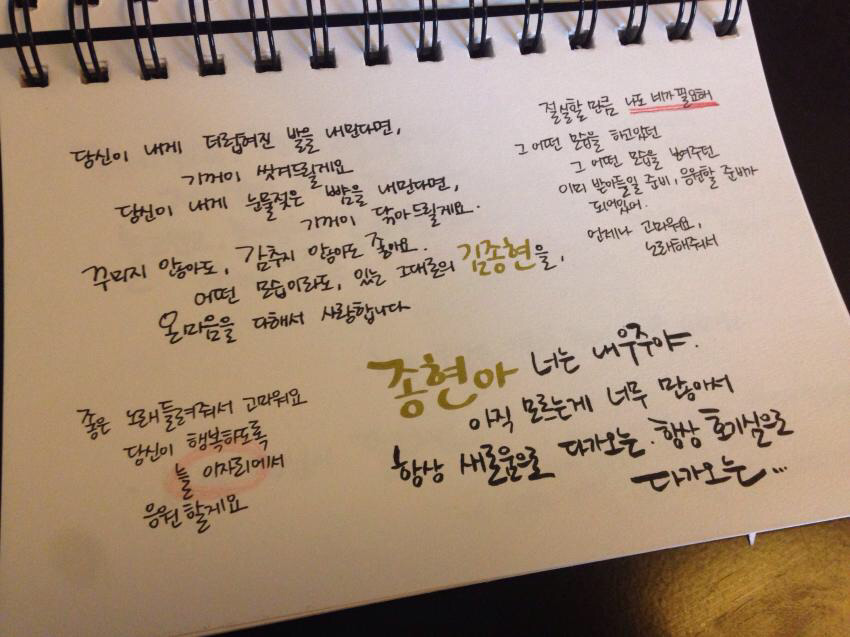 당신이 내게 더럽혀진 발을 내민다면,
기꺼이 씻겨드릴게요
당신이 내게 눈물젖은 뺨을 내민다면,
기꺼이 닦아드릴게요.
꾸미지 않아도, 감추지 않아도 좋아요.
어떤 모습이라도, 있는 그대로의 김종현을,
온마음을 다해서 사랑합니다
절실할 만큼 나도 네가 필요해
그 어떤 모습을 하고있던
그 어떤 모습을 보여주던
이미 받아들일 준비, 응원할 준비가
되어있어.
언제나 고마워요,
노래해줘서
좋은 노래 들려줘서 고마워요
당신이 행복하도록
늘 이자리에서
응원할게요
종현아 너는 내우주야.
아직 모르는게 너무 많아서
항상 새로움으로 다가오는. 항상 호기심으로
다가오는...